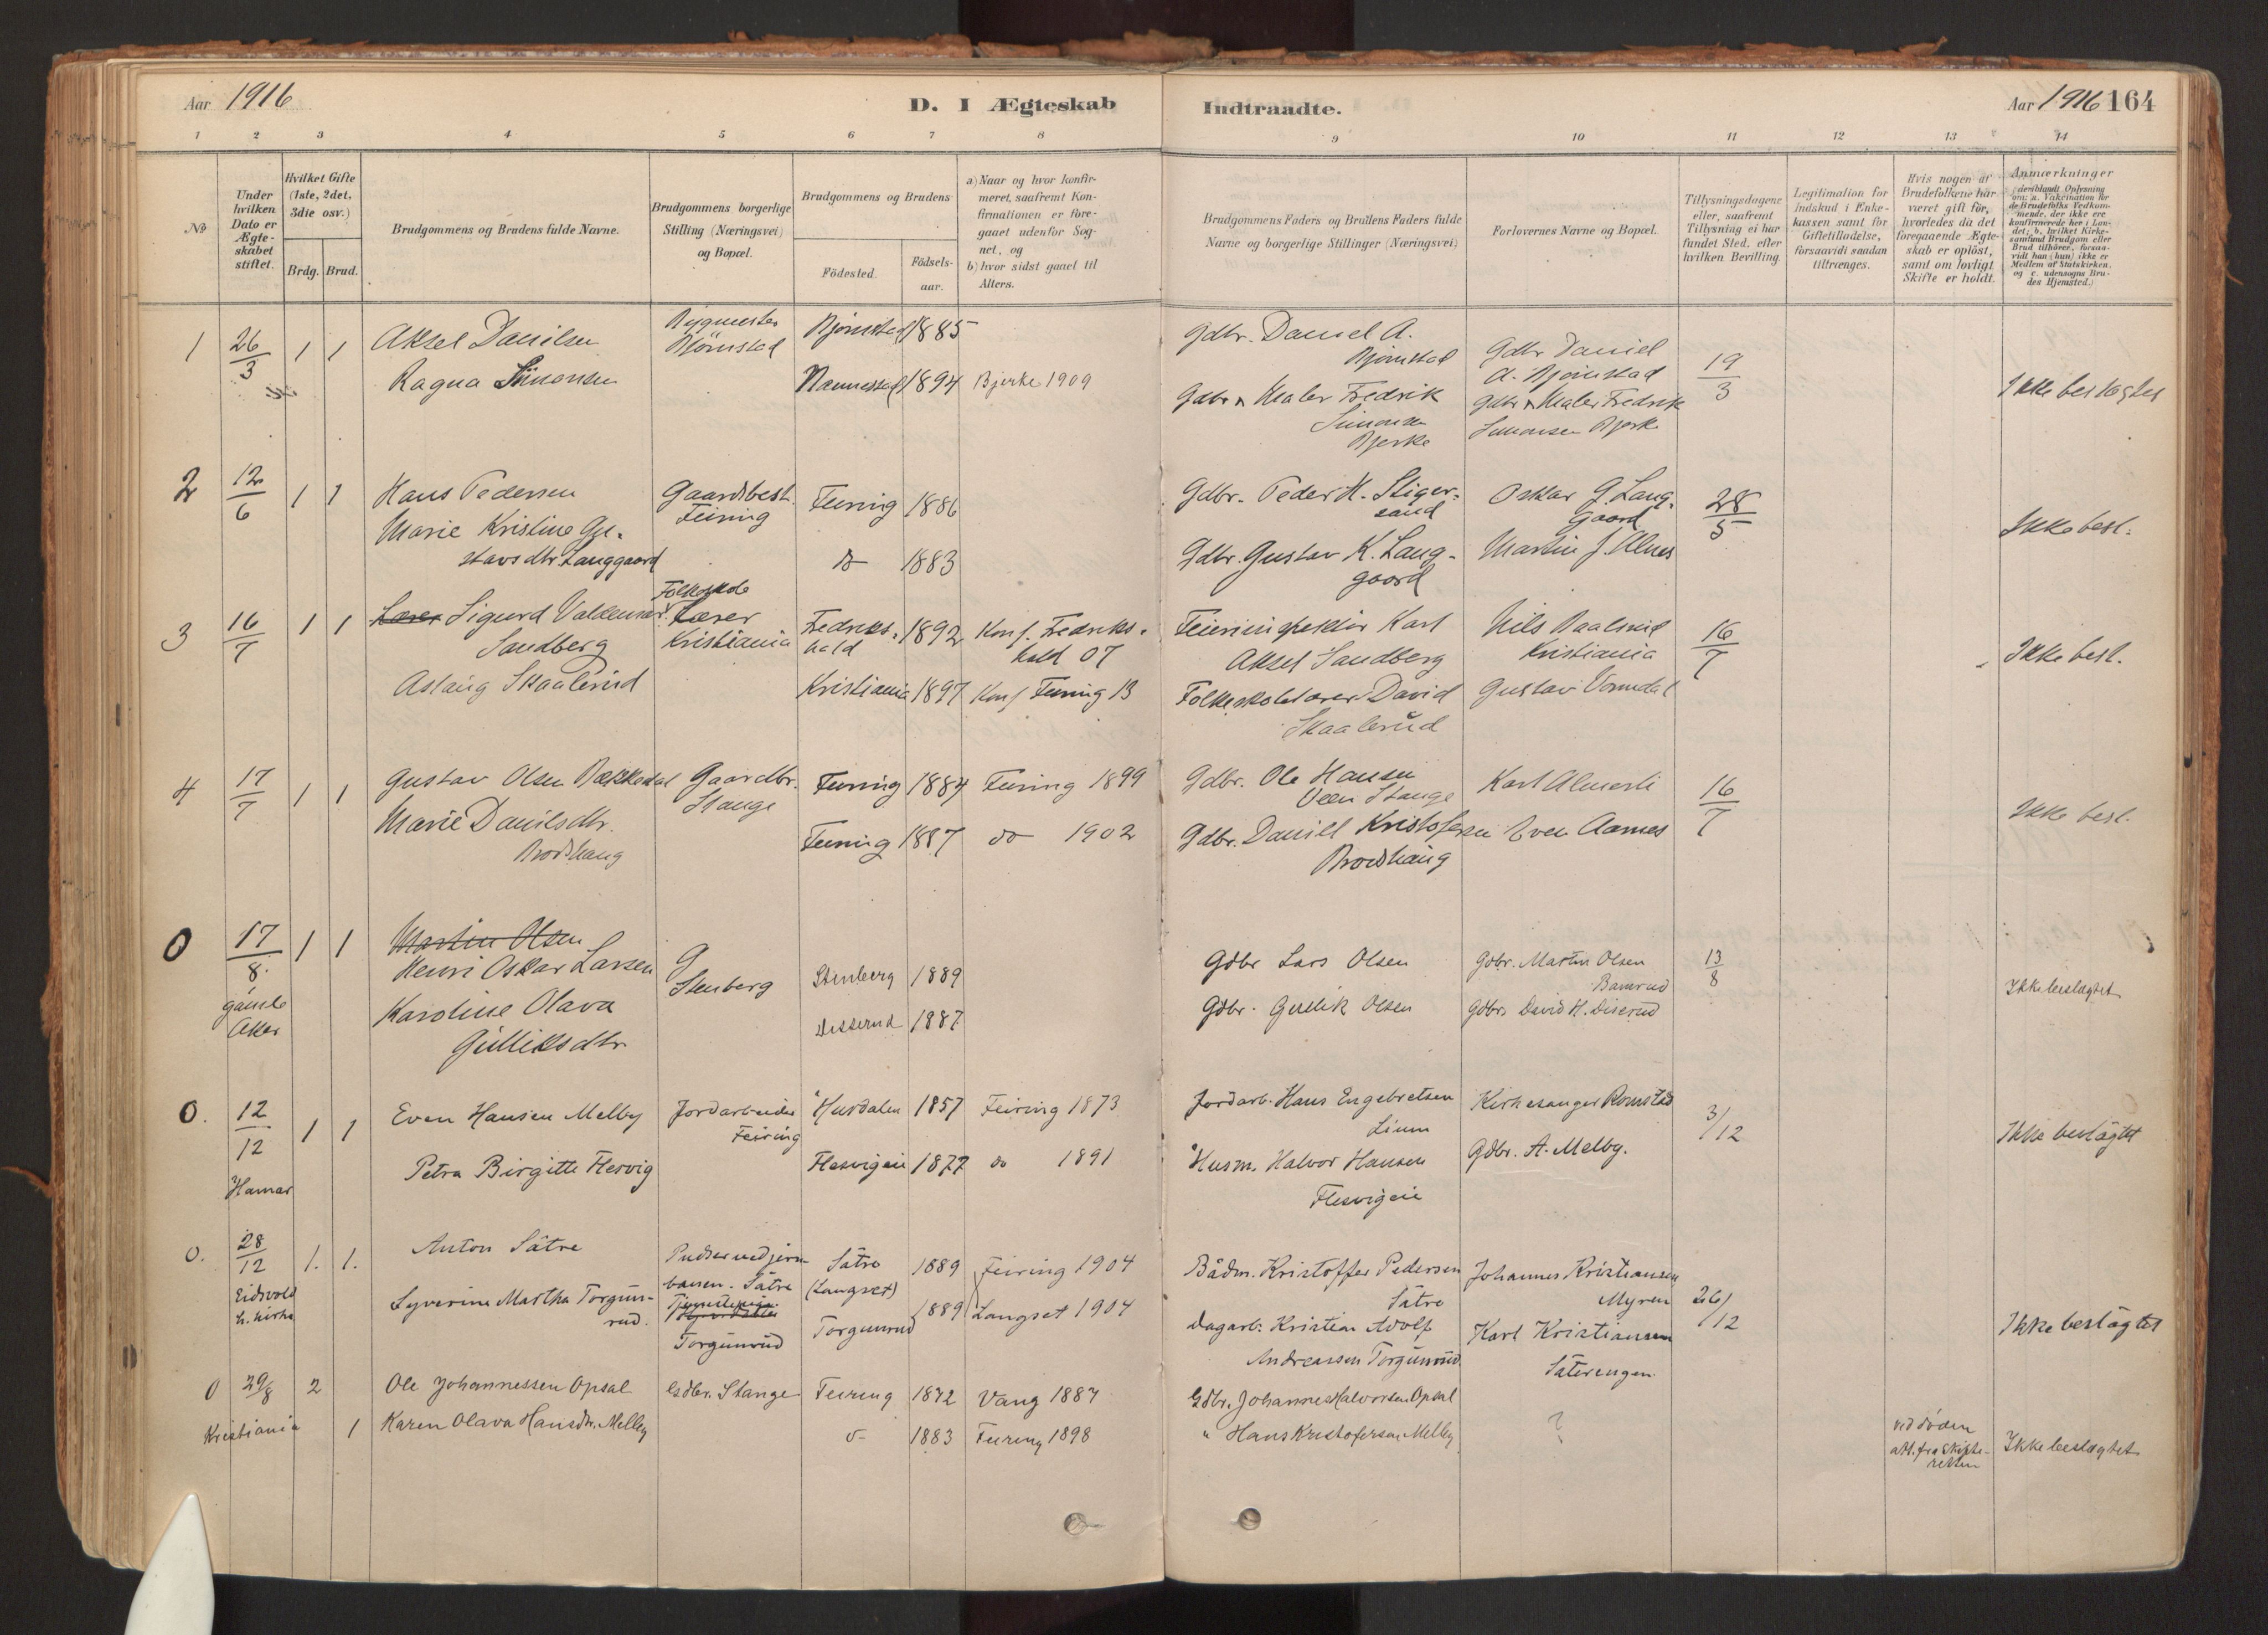 Aar 1916
D. I Ægteskab
Indtraadte.
Aar 1916 164
1 2 3 4 5 6 7 8 9 10 11 12 13 14
No
Under hvilken Dato er Ægteskabet stiftet.
Hvilket Gifte (1ste, 2det, 3die osv.)
Brdg. Brud.
Brudgommens og Brudens fulde Navne.
Brudgommens borgerlige Stilling (Næringsvei) og Bopæl.
Brudgommens og Brudens
Födested.
Födsels-aar.
a) Naar og hvor konfir-
meret, saafremt Kon-
firmationen er fore-
gaaet udenfor Sog-
net, og
b) hvor sidst gaaet til
Alters.
Brudgommens Faders og Brudens Faders fulde
Navne og borgerlige Stillinger (Næringsvei)
Forlovernes Navne og Bopæl.
Tillysningsdagene
eller, saafremt
Tillysning ei har
fundet Sted, efter
hvilken Bevilling.
Legitimation for
Indskud i Enke-
kassen samt for
Giftetilladelse,
forsaavidt saadan
tiltrænges.
Hvis nogen af
Brudefolkene har
været gift før,
hvorledes da det
foregaaende Ægte-
skab er oplöst,
samt om lovligt
Skifte er holdt.
Anmærkninger
(deriblandt Oplysning
om: a. Vakcination for
de Brudefolks Vedkom-
mende, der ikke ere
konfirmerede her i Lan-
det; b. hvilket Kirke-
samfund Brudgom eller
Brud tilhører, forsaa-
vidt han (hun) ikke er
Medlem af Statskirken,
og c. udensogns Bru-
des Hjemsted.)
1 26/3 1 1 Aksel Danilsen Bygmester Bjørnstad Bjørnstad 1885 Gdbr. Daniel A. Bjørnstad Gdbr Daniel A. Bjørnstad 19/3 Ikke beslægtet
Ragna Simonsen Nannestad 1894 Bjerke 1909 Gdbr & Maler Fredrik Simonsen Bjerke Gdbr & Maler Fredrik Simonsen Bjerke
2 12/6 1 1 Hans Pedersen Gaardbest. Feiring Feiring 1886 Gdbr. Peder H. Stigersand Oskar G. Langgaard 28/5 Ikke besl.
Marie Kristine Gustavsdtr Langgaard do 1883 Gdbr. Gustav K. Langgaard Martin J. Alnes
3 16/7 1 1 Lærer Sigurd Valdemar Sandberg Folkeskole Lærer Kristiania Fredrikshald 1892 Konf. Fredrikshald 07 Feierinspektør Karl Aksel Sandberg Nils Paalsrud Kristiania 16/7 Ikke besl.
Aslaug Skaalerud Kristiania 1897 Konf Feiring 13 Folkeskolelærer David Skaalerud Gustav Vormdal
4 17/7 1 1 Gustav Olsen Bækkedal Gaardbr. Stange Feiring 1884 Feiring 1899 Gdbr. Ole Hansen Veen Stange Karl Almerli 16/7 Ikke besl.
Marie Danilsdtr. Brodshaug Feiring 1887 do 1902 Gdbr. Daniel Kristofersen Brodshaug Even Aarnes
0 17/8. 1 1 Martin Olsen
Henri Oskar Larsen G Stenberg Stenberg 1889 Gdbr Lars Olsen Gdbr. Martin Olsen 13/8 Ikke beslægtet
gamle Aker Karoline Olava Gulliksdtr Disserud 1887 Gdbr. Gullik Olsen Gdbr. David H. Diserud
0. 12/12 1 1 Even Hansen Melby Jordarbeider Feiring Hurdalen 1857 Feiring 1873 Jordarb. Hans Engebretsen Lium Kirkesanger Romstad 3/12 Ikke beslägtet
Hamar Petra Birgitte Flesvig Flesvigeie 1877 do 1891 Husm. Halvor Hansen Flesvigeie Gdbr. A. Melby.
0. 28/12 1. 1. Anton Sätre Pudser ved jernbanen. Sätre Sätre (Langset) 1889 Feiring 1904 Bådm. Kristoffer Pedersen Sätre Johannes Kristiansen Myren 26/12 Ikke beslägtet
Eidsvold h. kirke Syverine Martha Torgunrud. Tjenestepige Torgunrud Torgunrud 1889 Langset 1904 Dagarb. Kristian Adolf Andreassen Torgunrud Karl Kristiansen Säterengen
0 29/8 2 Ole Johannessen Opsal Gdbr. Stange Feiring 1872 Vang 1887 Gdbr. Johannes Halvorsen Opsal
Kristiania 1 Karen Olava Hansdtr. Melby do 1883 Feiring 1898 " Hans Kristofersen Melby ? ved døden att. fra skifteretten Ikke beslægtet